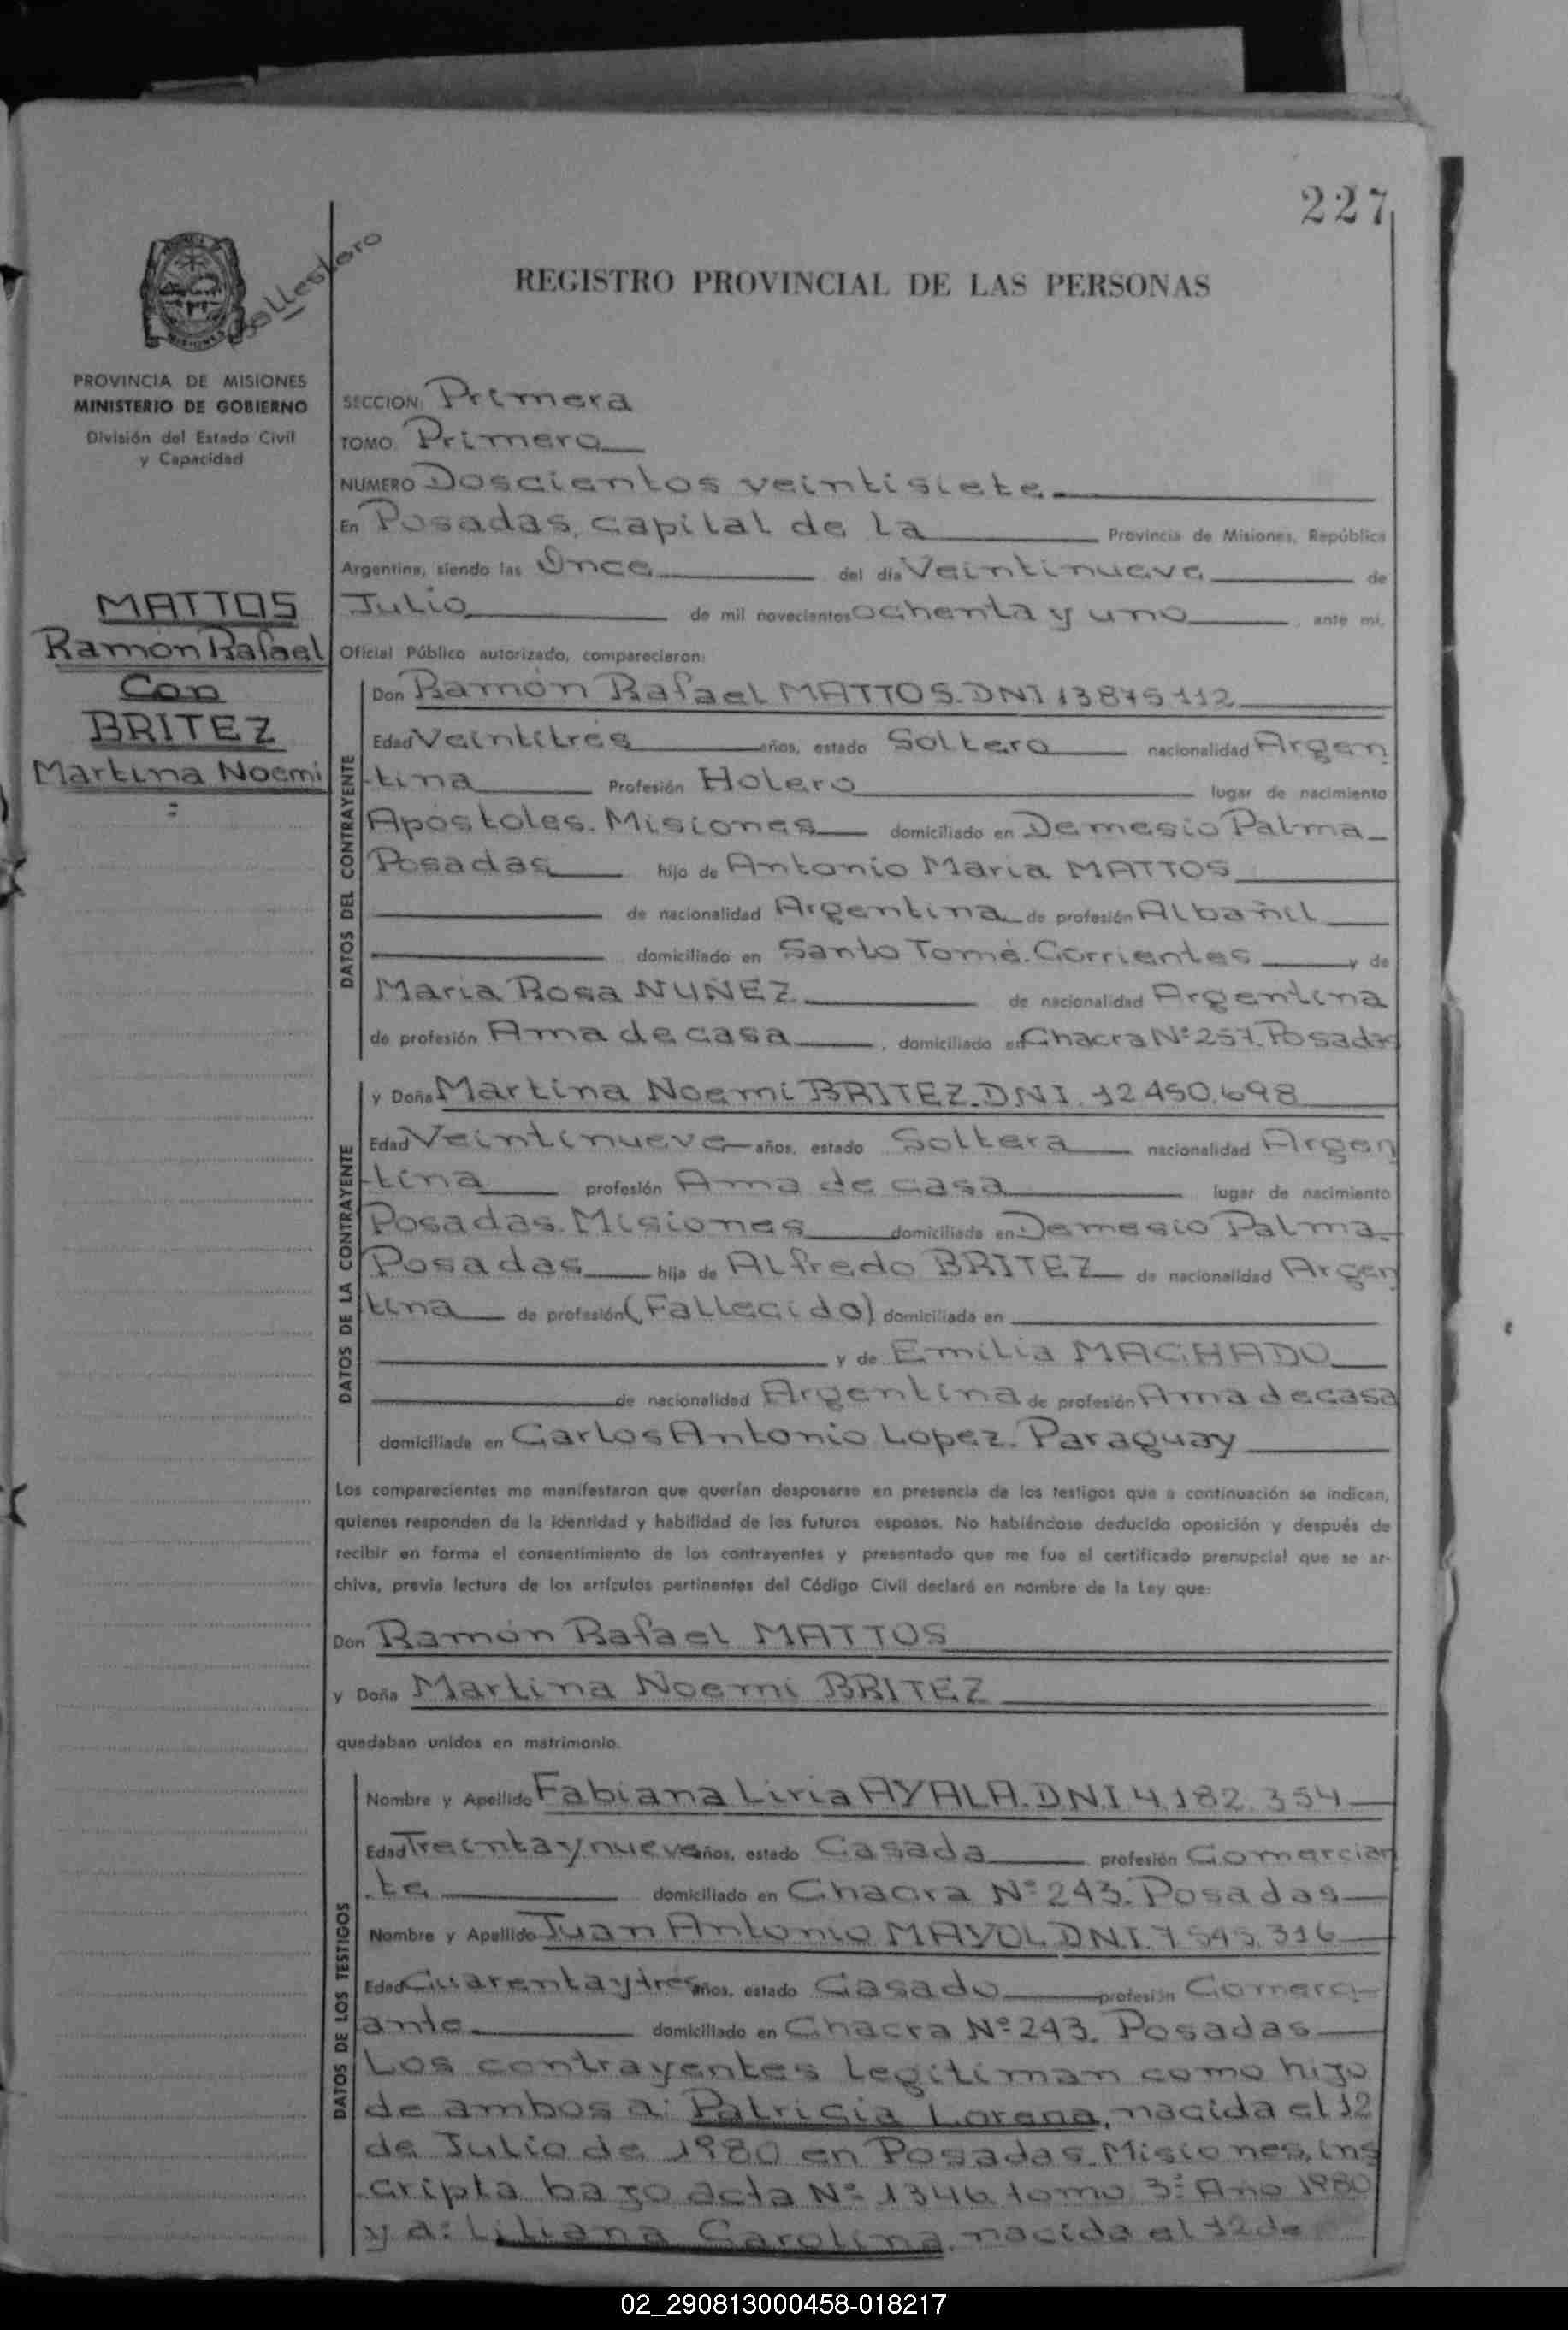 227
REGISTRO PROVINCIAL DE LAS PERSONAS
PROVINCIA DE MISIONES
MINISTERIO DE GOBIERNO
División del Estado Civil
y Capacidad
MATTOS
Ramón Rafael
Con
BRITEZ
Martina Noemi
=
SECCION: Primera
TOMO: Primero
NUMERO Doscientos veintisiete
En Posadas, capital de la Provincia de Misiones, República
Argentina, siendo las Once del día Veintinueve de
Julio de mil novecientos ochenta y uno ante mí,
Oficial Público autorizado, comparecieron:
DATOS DEL CONTRAYENTE
Don Ramón Rafael MATTOS. DNI 13875112
Edad Veintitres años, estado Soltero nacionalidad Argen
tina Profesión Hotero lugar de nacimiento
Apóstoles. Misiones domiciliado en Demesio Palma
Posadas hijo de Antonio Maria MATTOS
de nacionalidad Argentina de profesión Albañil
domiciliado en Santo Tomé. Corrientes y de
Maria Rosa NUÑEZ de nacionalidad Argentina
de profesión Ama de casa, domiciliado en Chacra Nº 257. Posadas
DATOS DE LA CONTRAYENTE
y Doña Martina Noemi BRITEZ. DNI. 12.450.698
Edad Veintinueve años, estado Soltera nacionalidad Argen
tina profesión Ama de casa lugar de nacimiento
Posadas. Misiones domiciliada en Demesio Palma.
Posadas hija de Alfredo BRITEZ de nacionalidad Argen
tina de profesión (Fallecido) domiciliada en
y de Emilia MACHADO
de nacionalidad Argentina de profesión Ama de casa
domiciliada en Carlos Antonio Lopez. Paraguay
Los comparecientes me manifestaron que querían desposarse en presencia de los testigos que a continuación se indican,
quienes responden de la identidad y habilidad de los futuros esposos. No habiéndose deducido oposición y después de
recibir en forma el consentimiento de los contrayentes y presentado que me fue el certificado prenupcial que se ar-
chiva, previa lectura de los artículos pertinentes del Código Civil declaré en nombre de la Ley que:
Don Ramón Rafael MATTOS
y Doña Martina Noemi BRITEZ
quedaban unidos en matrimonio.
DATOS DE LOS TESTIGOS
Nombre y Apellido Fabiana Liria AYALA. DNI 4.182.354
Edad Treinta y nueve años, estado Casada profesión Comercian
te domiciliado en Chacra Nº 243. Posadas
Nombre y Apellido Juan Antonio MAYOL DNI. 7.545.316
Edad Cuarenta y tres años, estado Casado profesión Comerci-
ante domiciliado en Chacra Nº 243. Posadas
Los contrayentes legitiman como hijo
de ambos a: Patricia Lorena, nacida el 12
de Julio de 1980 en Posadas. Misiones, ins
cripta bajo acta Nº 1346 tomo 3º Año 1980
y a: Liliana Carolina, nacida el 12 de
02_290813000458-018217